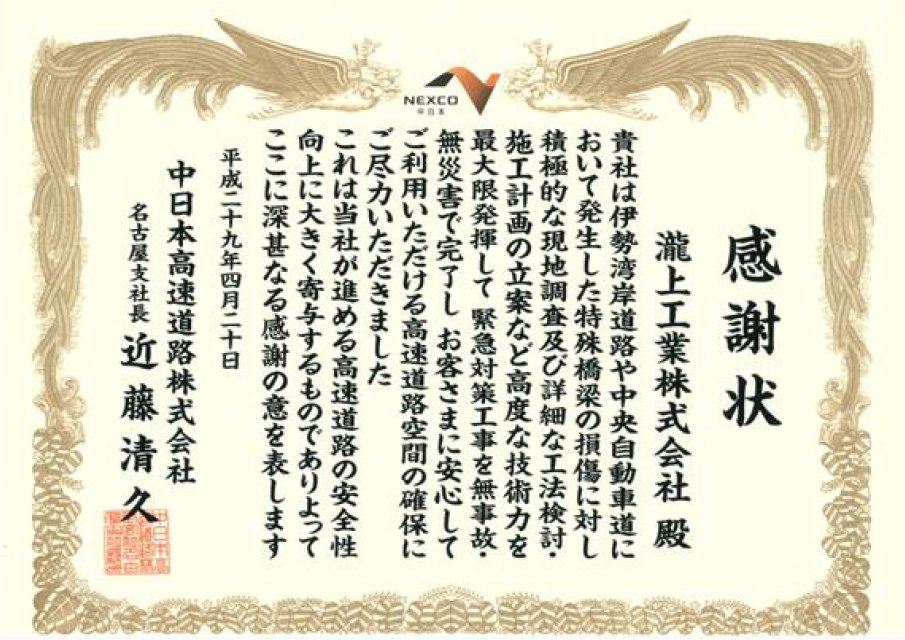 NEXCO
中日本
感謝状
瀧上工業株式会社 殿
貴社は伊勢湾岸道路や中央自動車道に
おいて発生した特殊橋梁の損傷に対し
積極的な現地調査及び詳細な工法検討・
施工計画の立案など高度な技術力を
最大限発揮して 緊急対策工事を無事故・
無災害で完了し お客さまに安心して
ご利用いただける高速道路空間の確保に
ご尽力いただきました
これは当社が進める高速道路の安全性
向上に大きく寄与するものでありよって
ここに深甚なる感謝の意を表します
平成二十九年四月二十日
中日本高速道路株式会社
名古屋支社長 近藤清久